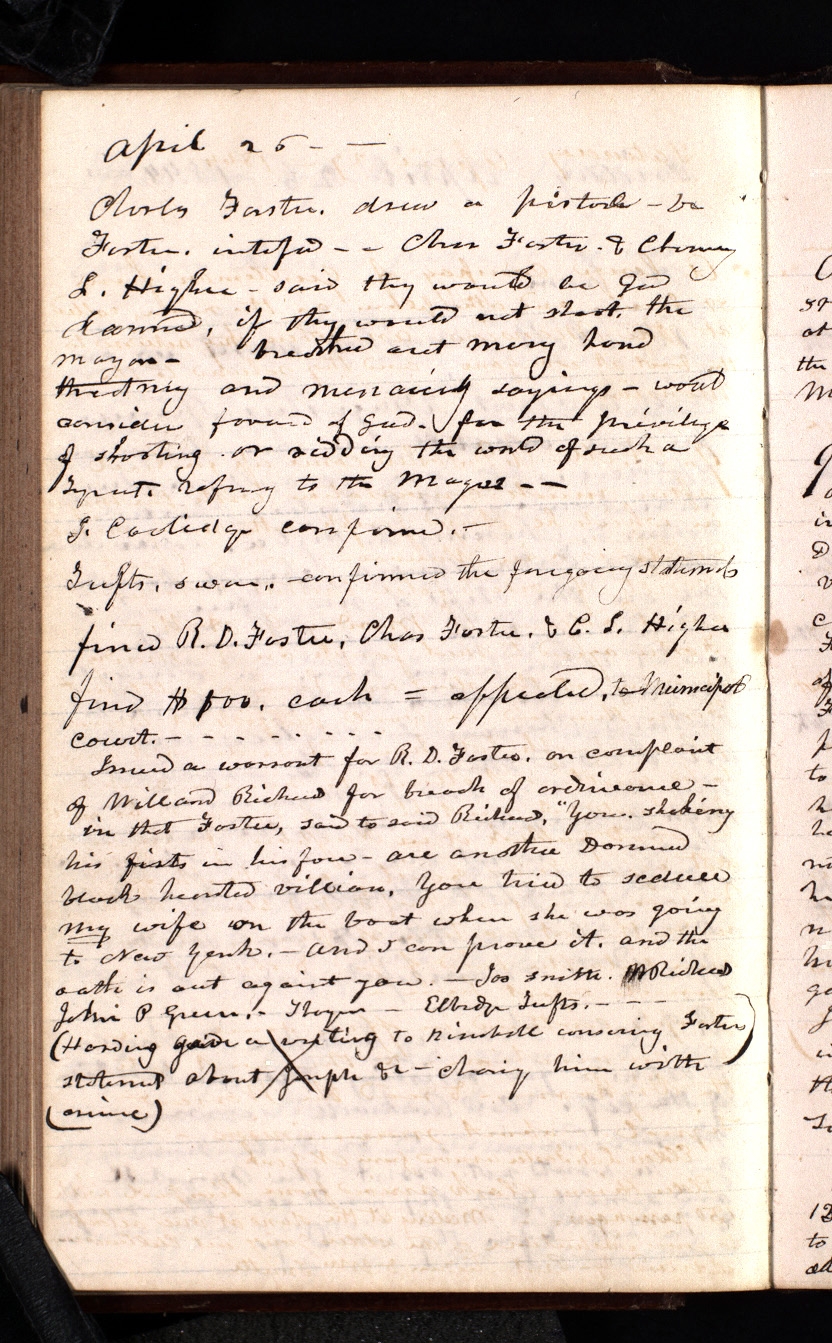 April 26- —
Charles Foster. drew a pistol - R D
Foster. interfed - - Chas Foster. & Chancy
L. Higbee - said they would be God
damned, if they would not shoot. the
mayor - breathed out many hard
threatnig and menacing sayings - would
consider favored of God. for the privilege
of shooting or ridding the world of such a
tyrant. refering to the Mayor - -
J. Coolidge confirmed. -
Tufts, sworn. - confirmed the foregoing statements
fined R. D. Foster, Chas Foster. & C. L. Higbee
find $100. each = appealed, to Municipal
court. - - - - - - - -
Issued a warrant for R. D. Foster. on complaint
of Willard Richards for breach of ordinance -
in that Foster, said to said Richards, "You. shaking
his fists in his face - are another Damned
black hearted villian, You tried to seduce
my wife on the boat when she was going
to New York. - and I can prove it. and the
oath is out against you. - Jos smith. W Richards
John P Green. - - Elbridge Tufts. - - - -
(Harding gave a writing to Kimball concerning Foster)
statement about Joseph &c - charg him with
(crime)